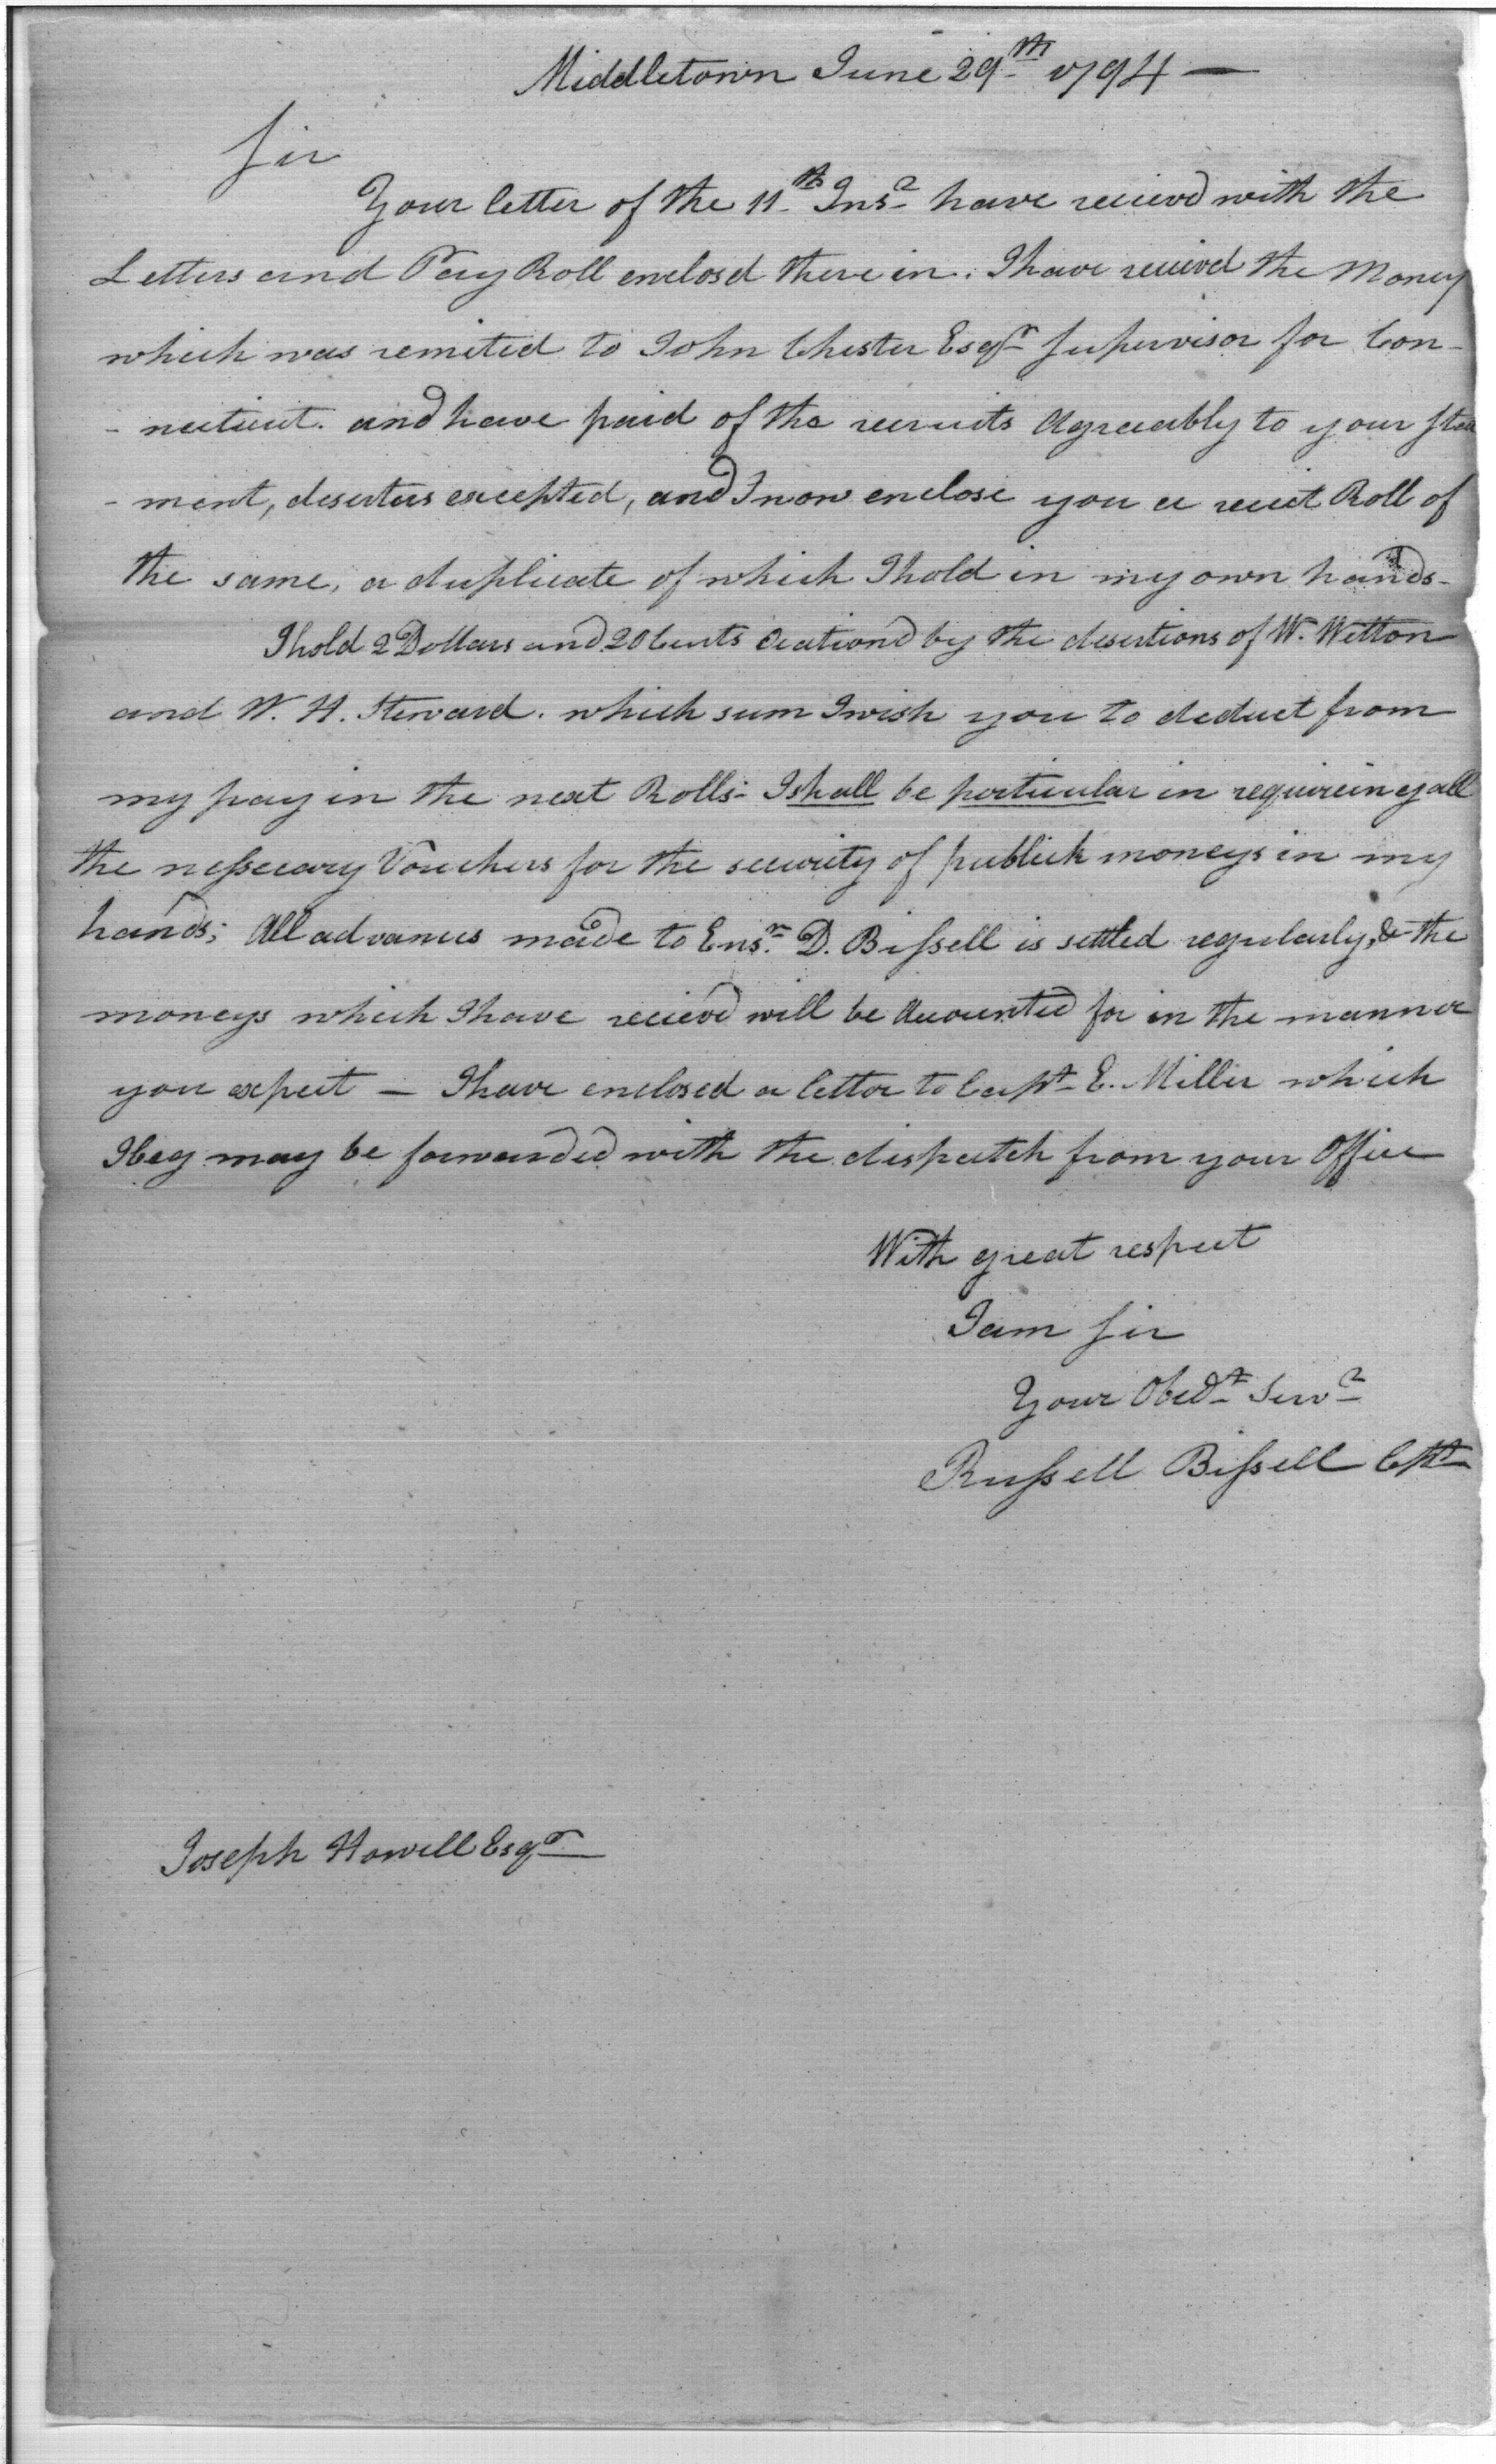 Middletown June 29th 1794 —
Sir
Your letter of the 11th Inst have recievd with the
Letters and Pay Roll enclosd there in. I have recievd the Money
which was remited to John Chester Esqr Supervisor for Con-
- necticut. and have paid of the recruits Agreeably to your State
- ment, deserters excepted, and I now enclose you a reciet Roll of
the same, a duplicate of which I hold in my own hands -
I hold 2 Dollars and 20 Cents by the desertions of W. Wetton
and W. H. Steward. which sum I wish you to deduct from
my pay in the next Rolls - I shall be particular in requireing all
the nessecary Vouchers for the security of publick moneys in my
hands; All advances made to Ensn. D. Bissell is settled regularly, & the
moneys which I have recievd will be Accounted for in the manner
you expect — I have enclosed a letter to Capt E. Miller which
I beg may be forwarded with the dispatch from your Office
With great respect
I am Sir
Your Obedt Servt
Russell Bissell Cpt
Joseph Howell Esqr